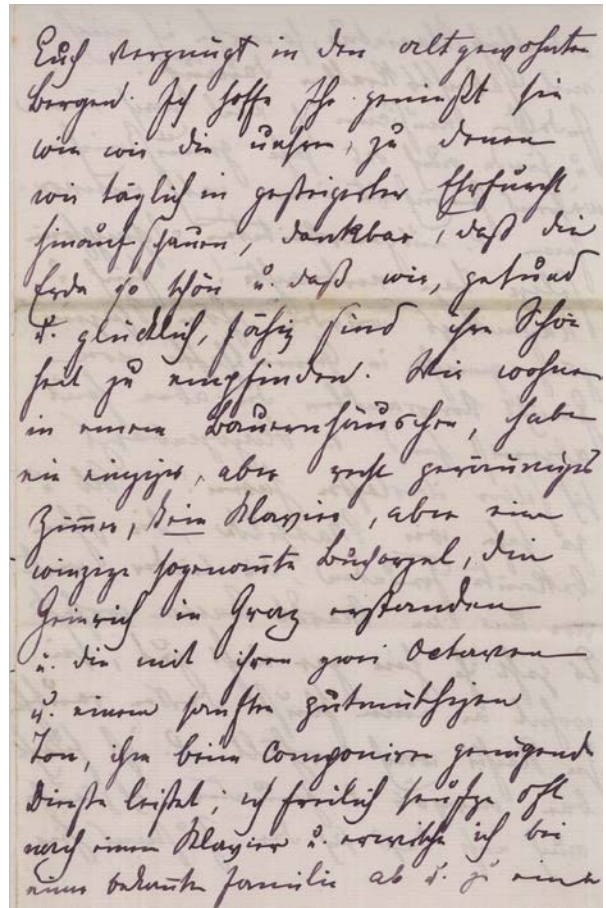 Euch vergnügt in den altgewohnten
Bergen. Ich hoffe Ihr genießt sie
wie wir die unsren, zu denen
wir täglich in gesteigerter Ehrfurcht
hinauf schauen, dankbar, daß die
Erde so schön u. daß wir, gesund
u. glücklich, fähig sind ihre Schön
heit zu empfinden. Wir wohnen
in einem Bauernhäuschen, haben
ein einziges, aber recht geräumiges
Zimmer, kein Klavier, aber eine
winzige sogenannte Buchorgel, die
Heinrich in Graz erstanden
u. die mit ihren zwei Octaven
u. einem sanften gutmüthigen
Ton, ihm beim Componiren genügend
Dienste leistet; ich freilich seufze oft
nach einem Klavier u. erwische ich bei
einer bekannten Familie ab u. zu eine